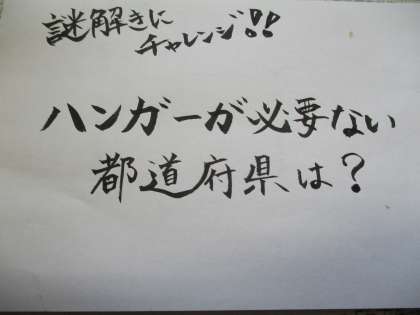 謎解きに
チャレンジ!!
ハンガーが必要ない
都道府県は?